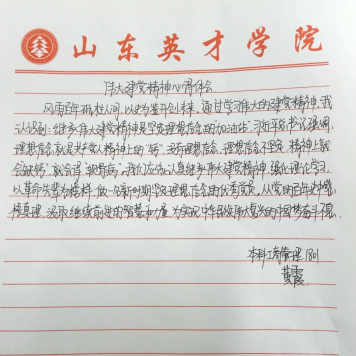 山东英才学院
伟大建党精神心得体会
风雨百年 初心人间，以史为鉴开创未来，通过学习伟大的建党精神，我
认识到：继承伟大建党精神是坚定理想信念的“加油站”。习近平总书记强调，
理想信念就是共产党人精神上的“钙”，没有理想信念，理想信念不坚定，精神上就
会“缺钙”，就会得“软骨病”。我们应当认真继承伟大建党精神，强化理论学习，
以革命先辈为榜样，做一名新时期的理想信念的优秀党员，从党的百年史中感
悟真理，汲取继续前进的智慧和力量，为实现中华民族伟大复兴的中国梦奋斗不息。
本科工商管理1801
黄霞